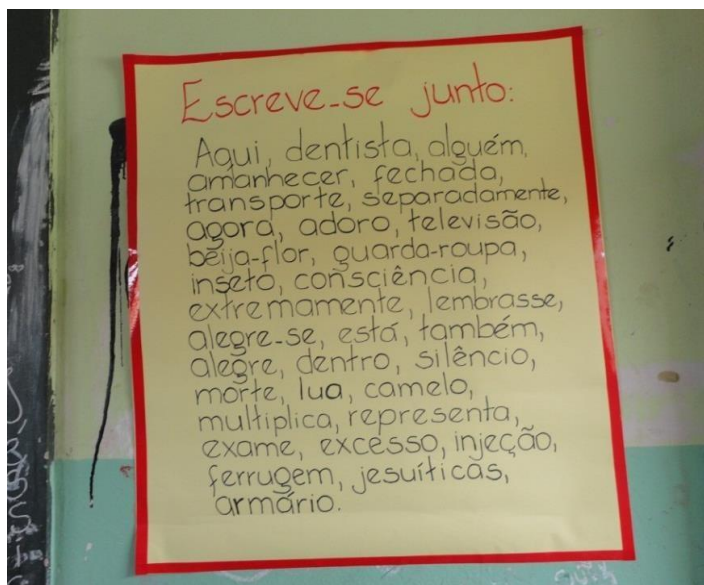 Escreve-se junto:
Aqui, dentista, alguém,
amanhecer, fechada,
transporte, separadamente,
agora, adoro, televisão,
beija-flor, guarda-roupa,
inseto, consciência,
extremamente, lembrasse,
alegre-se, está, também,
alegre, dentro, silêncio,
morte, lua, camelo,
multiplica, representa,
exame, excesso, injeção,
ferrugem, jesuíticas,
armário.